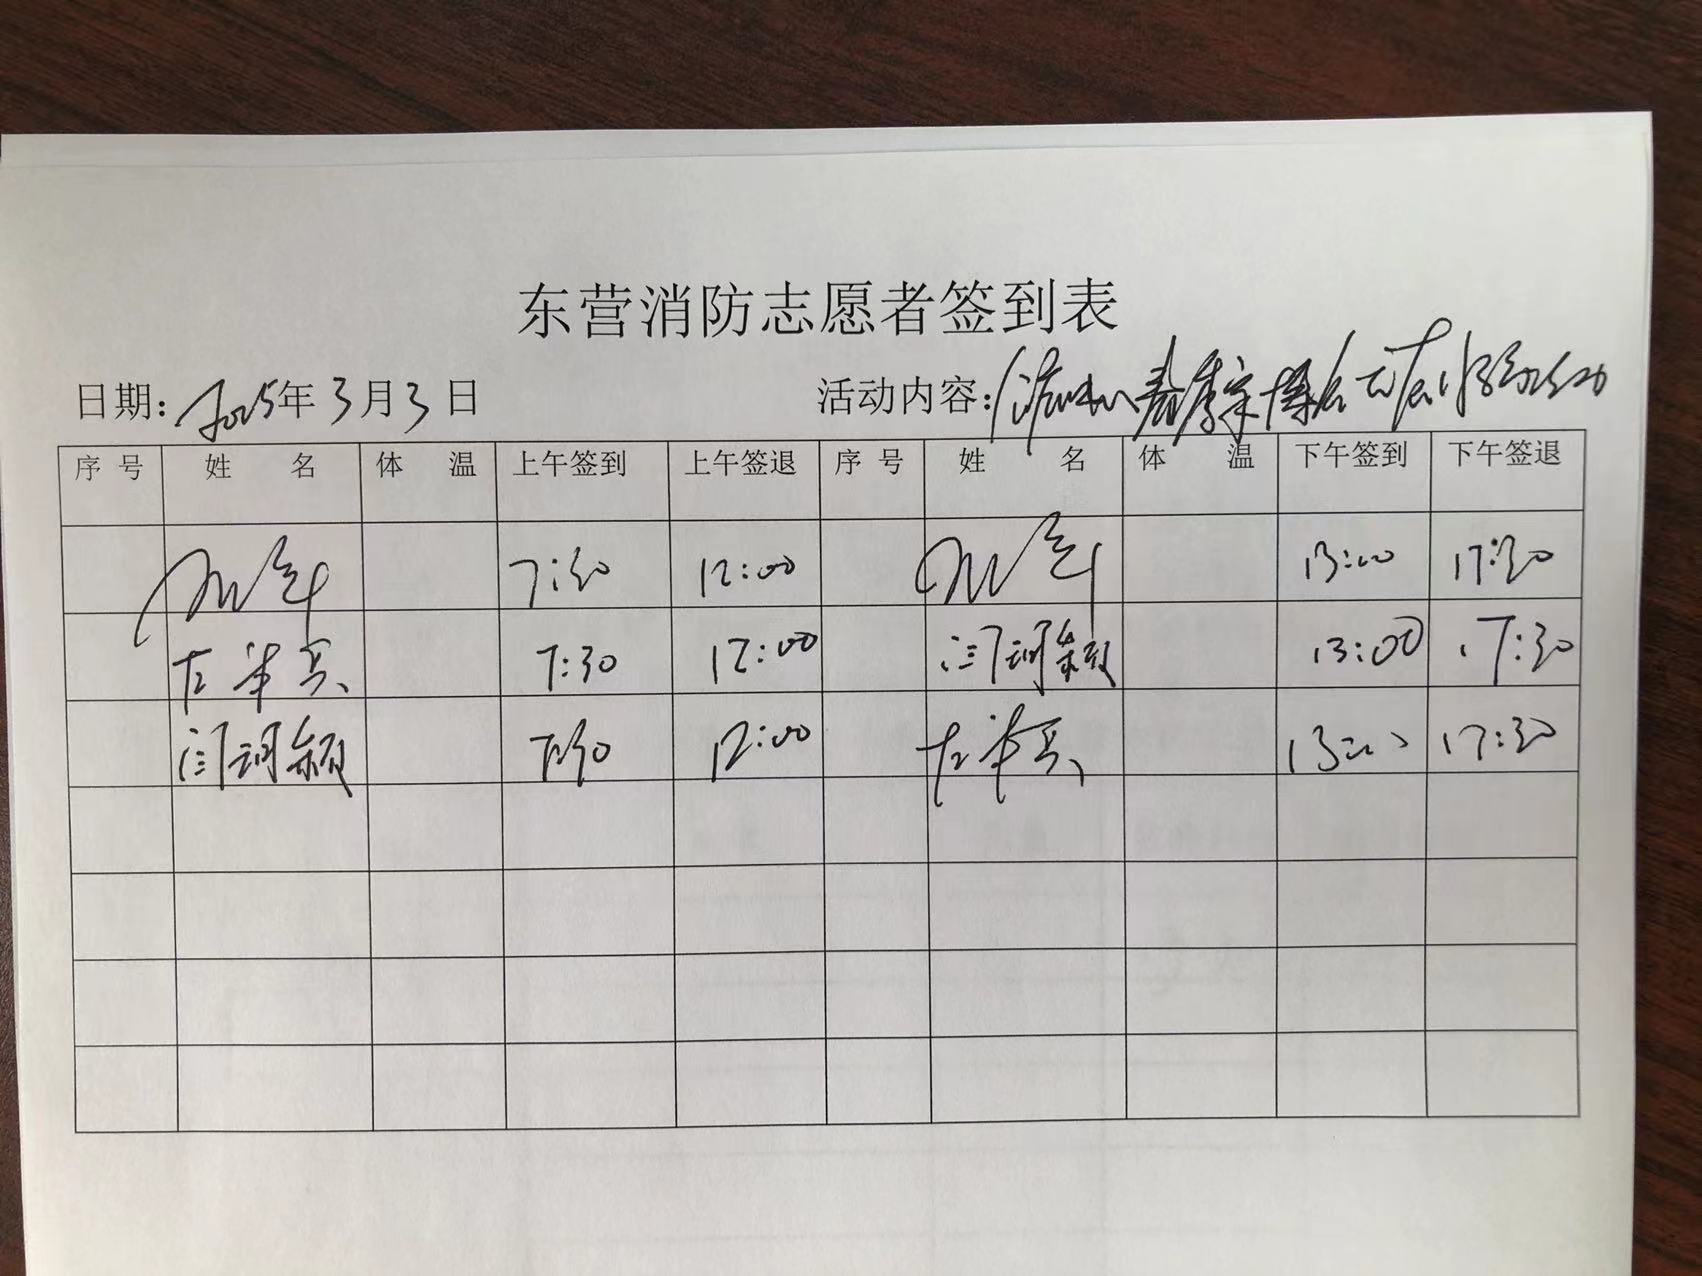 东营消防志愿者签到表
日期: 2025年3月3日 活动内容:
序号 姓 名 体 温 上午签到 上午签退 序号 姓 名 体 温 下午签到 下午签退
7:30 12:00 13:00 17:30
7:30 12:00 闫珂颖 13:00 17:30
闫珂颖 7:30 12:00 13:00 17:30